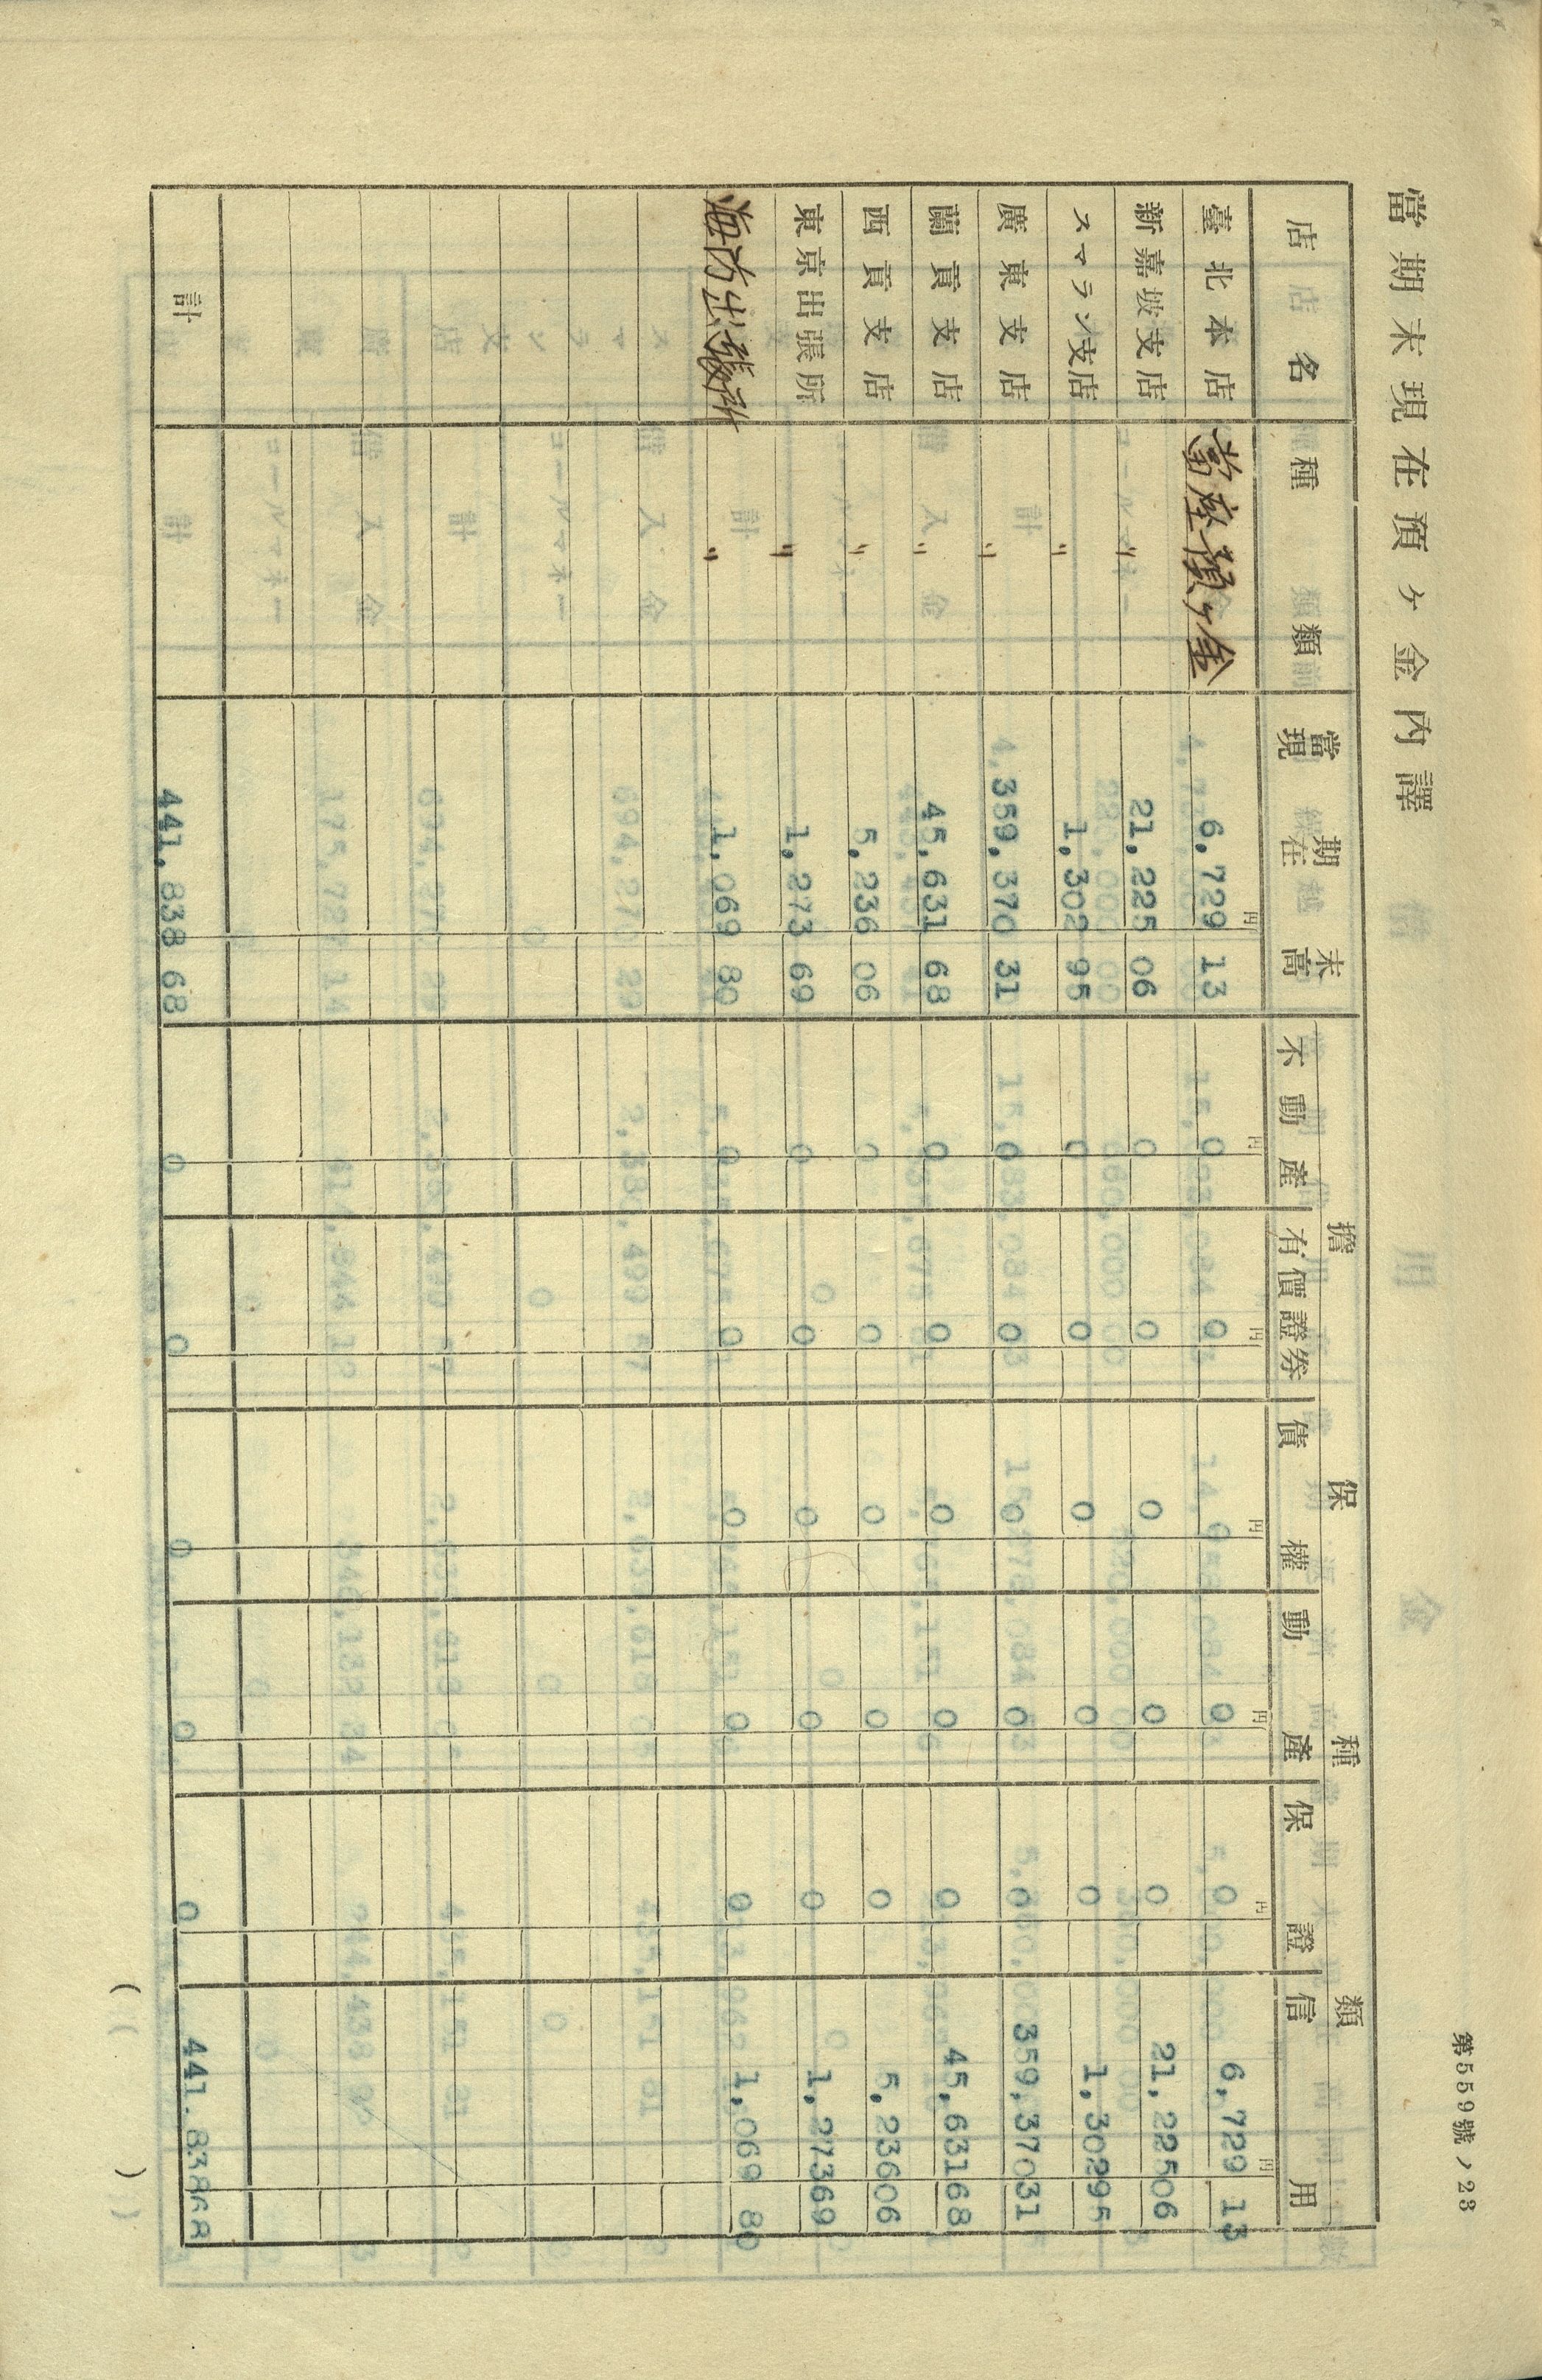 第559號ノ23
當期末現在預ヶ金內譯
店名 種類 當期末現在高 擔保種類
不動產 有價證券 債權 動產 保證 信用
円 円 円 円 円 円
臺北本店 當座預ヶ金 6,729 13 0 0 0 0 0 6,729 13
新嘉坡支店 〃 21,225 06 0 0 0 0 0 21,225 06
スマラン支店 〃 1,302 95 0 0 0 0 0 1,302 95
廣東支店 〃 359,370 31 0 0 0 0 0 359,370 31
蘭貢支店 〃 45,631 68 0 0 0 0 0 45,631 68
西貢支店 〃 5,236 06 0 0 0 0 0 5,236 06
東京出張所 〃 1,273 69 0 0 0 0 0 1,273 69
海防出張所 〃 1,069 80 0 0 0 0 0 1,069 80
計 441,838 68 0 0 0 0 0 441.838 68
( )